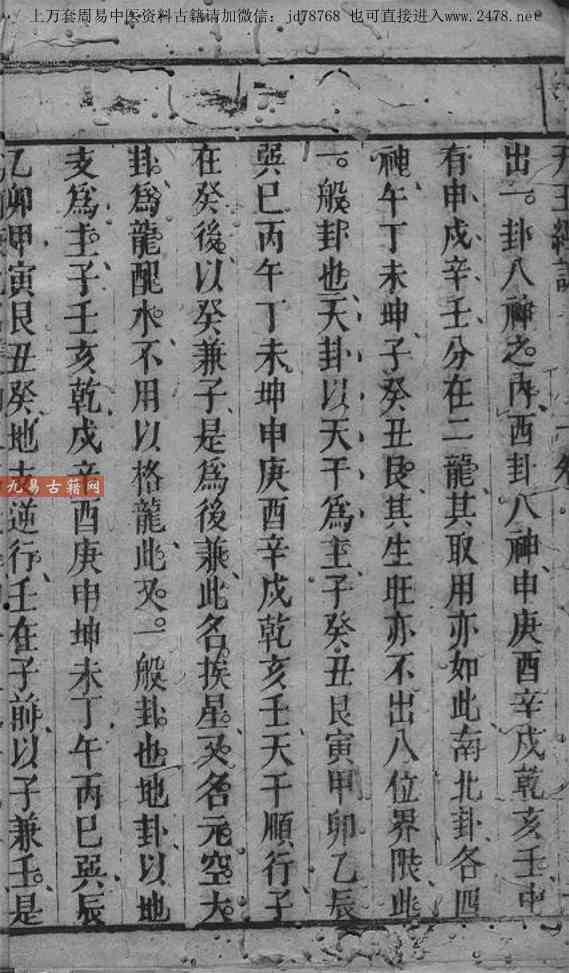 上万套周易中医资料古籍请加微信：jd78768 也可直接进入www.2478.net
出一。卦八神之內、酉卦八神、申庚酉辛戌乾亥壬、中
有申戌辛壬、分在二龍、其取用亦如此、南北卦各四
神、午丁未坤、子癸丑艮、其生旺亦不出八位界限、此
一。般卦也、天卦以天干為主、子癸丑艮寅甲卯乙辰
巽巳丙午丁未坤申庚酉辛戌乾亥壬、天干順行、子
在癸後、以癸兼子、是為後兼、此名挨星。又名元空。大
卦。為龍配水。不用以格龍、此又。一般卦也、地卦以地
支為主、子壬亥乾戌辛酉庚申坤未丁午丙巳巽辰
乙卯甲寅艮丑癸、地支逆行、壬在子前、以子兼壬、是
九易古籍网